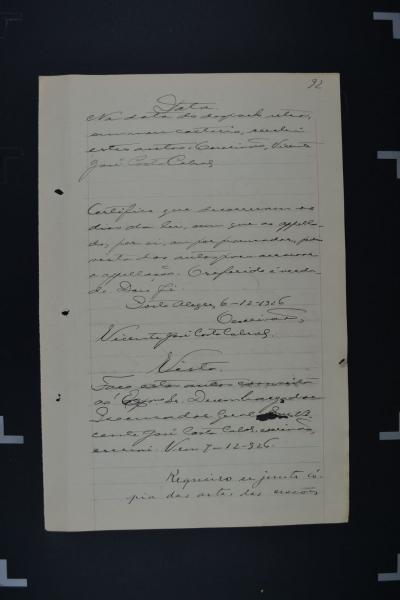 92
Data.
Na data do despacho retro,
em meu cartorio, recebi
estes autos. O escrivão, Vicente
José Costa Cabral
Certifico que decorreram os
dias da lei, sem que os appella-
dos, por si, ou por procurador, pe
vista dos autos para arrazoar
a appellação. O referido é verda-
de. Dou fé.
Porto Alegre, 6-12-926
O escrivão,
Vicente José Costa Cabral.
Visto.
Faço estes autos
ao Exmo Sr. Desembargador
Procurador Geral. Eu Vi
cente José Costa Cabr. escrivão,
escrevi. Em 7-12-926.
Requeiro se junte có-
pia das actas das sessões